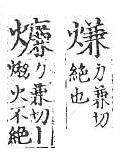 熑力兼切
絶也
燫力兼切丨
㷠火不絕